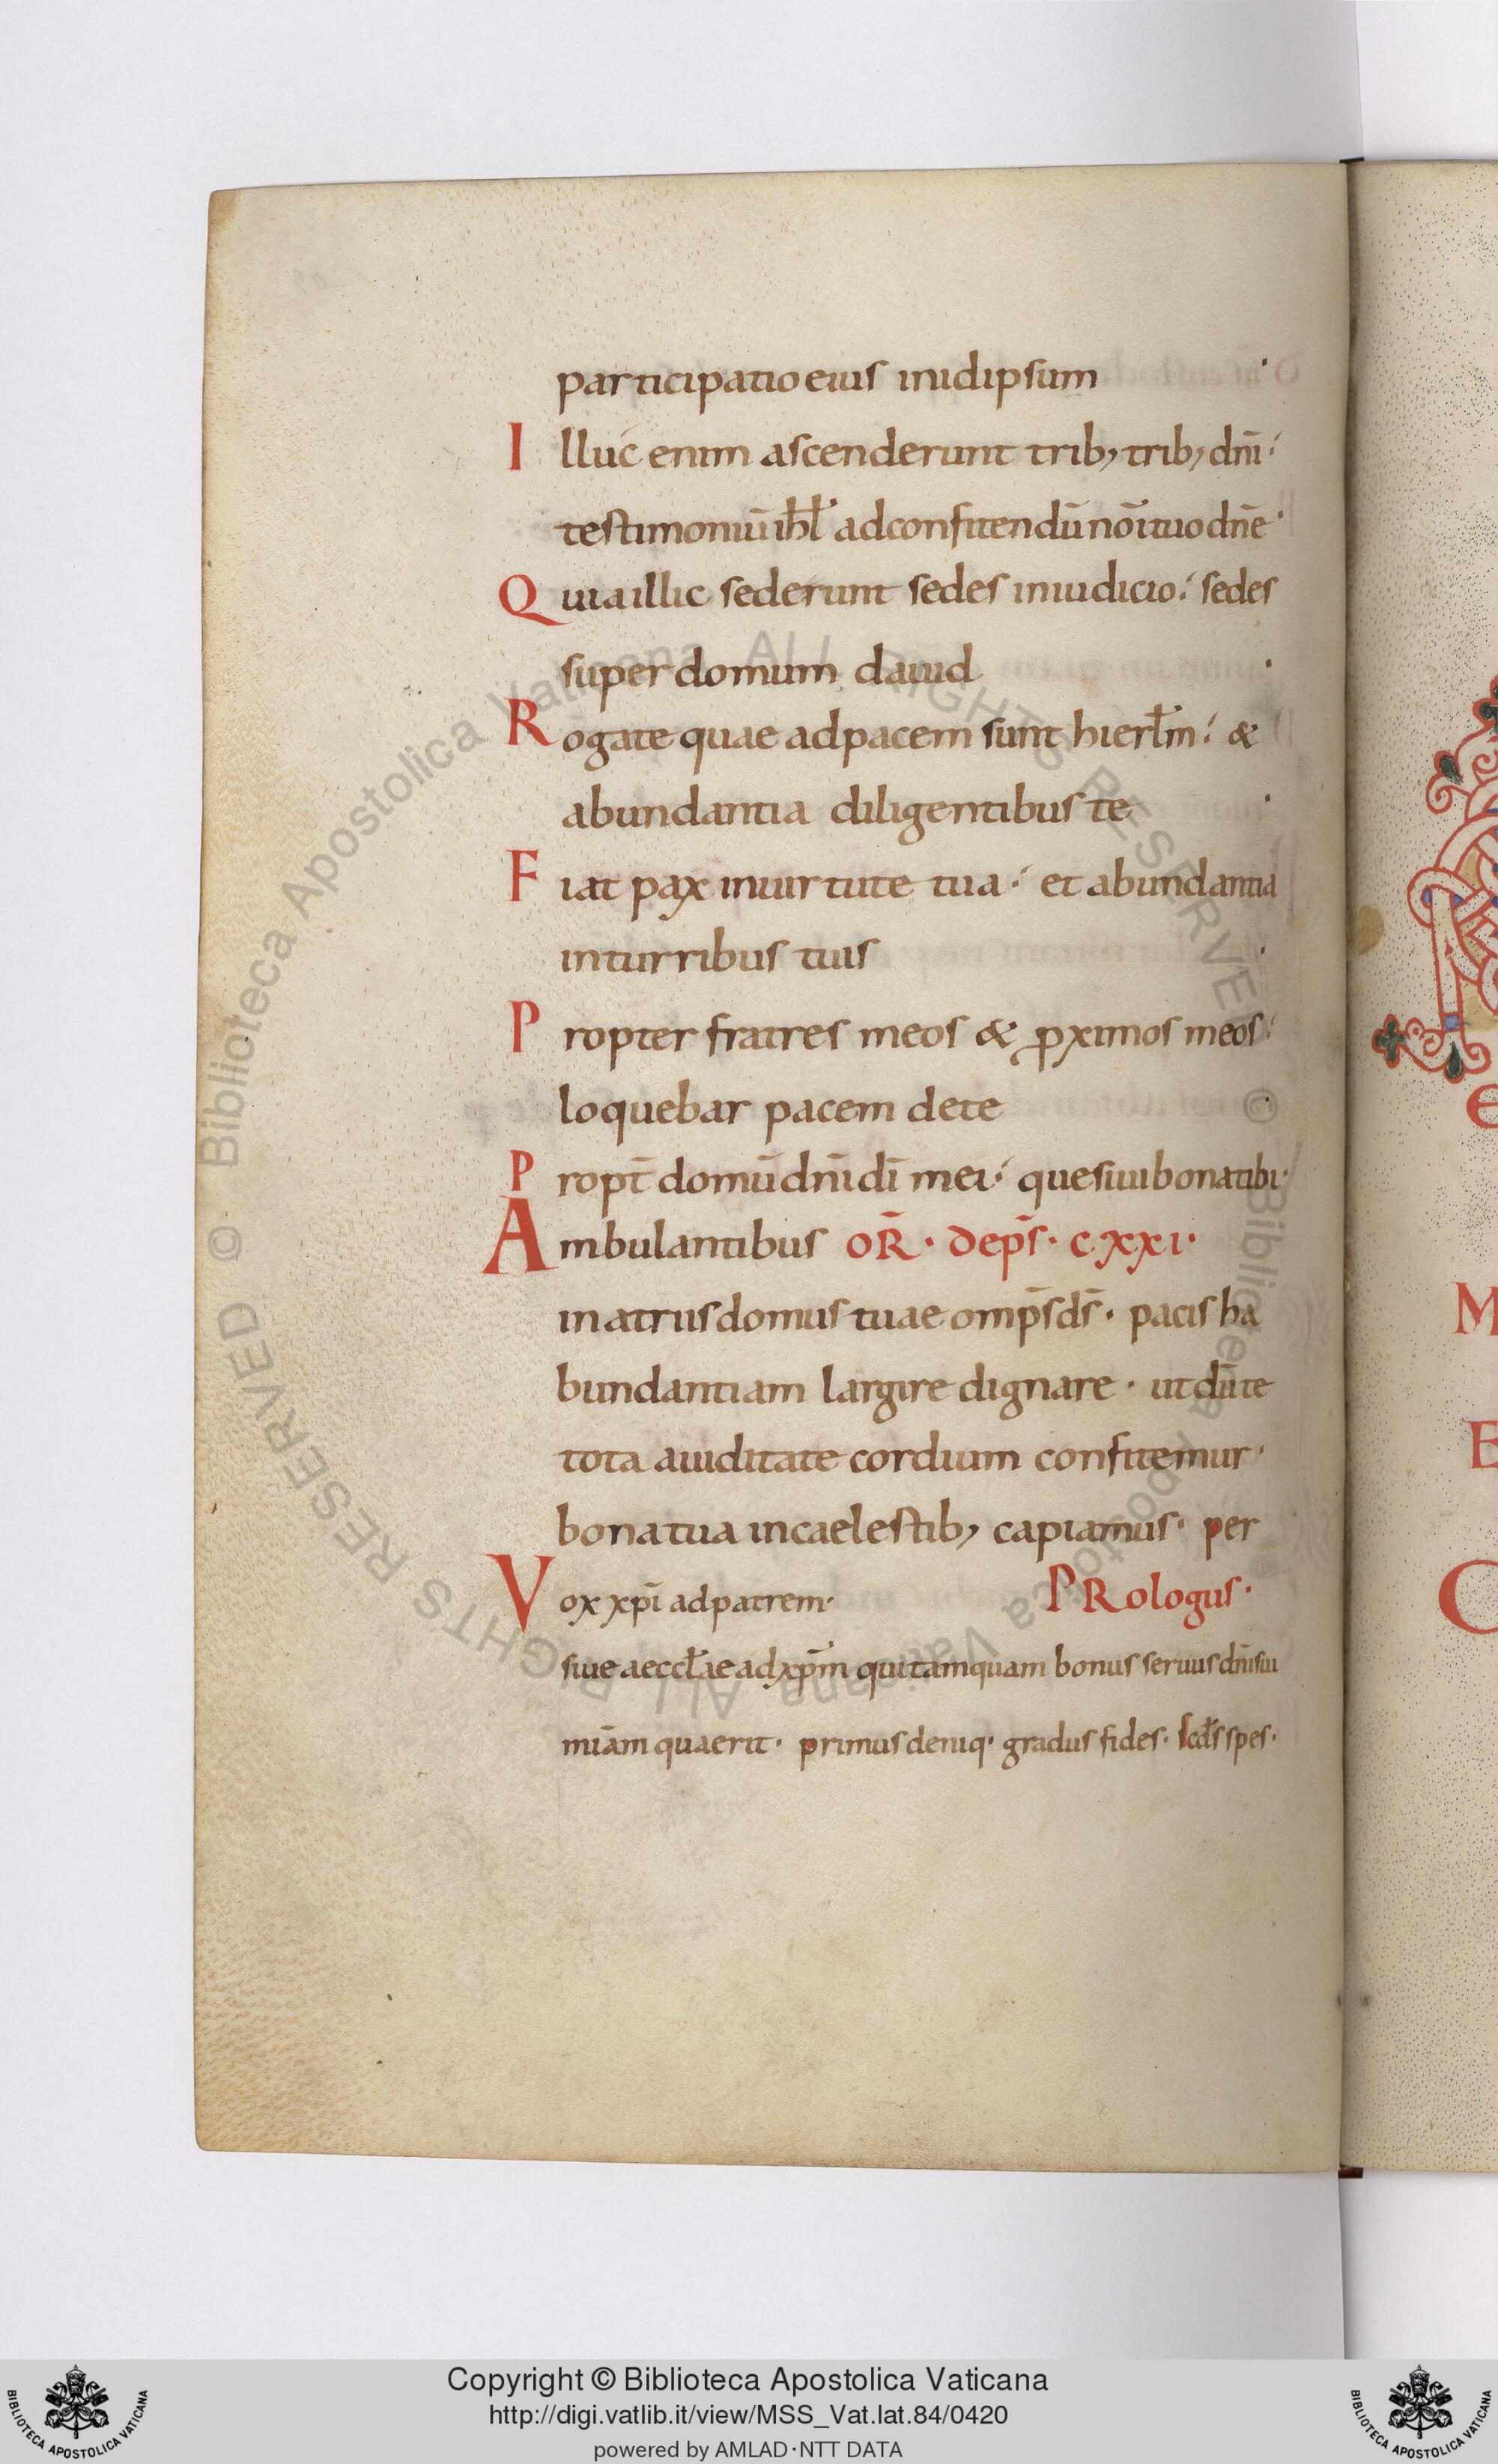 participatio eius inidipsum ·
Illuc enim ascenderunt trib; trib; dn̄i·
testimoniū ihl̄ adconfitendū nōi tuo dn̄e·
Quia illic sederunt sedes iniudicio· sedes
super domum dauid ·
Rogate quae adpacem sunt hierl̄m· &
abundantia diligentibus te ·
Fiat pax inuirtute tua· et abundantia
inturribus tuis ·
Propter fratres meos & ꝓximos meos·
loquebar pacem dete ·
Propt̄ domū dn̄i dī mei· quesiui bona tibi·
Ambulantibus OR̄· dep̄s· cxxi·
in atriis domus tuae omp̄s d̄s· pacis ha
bundantiam largire dignare· ut dū te
tota auiditate cordium confitemur·
bona tua incaelestib; capiamus· per
Vox xp̄i ad patrem· PRologus·
siue aeccl̄ae ad xp̄m qui tamquam bonus seruus dn̄i sui
miām quaerit· primus deniq· gradus fides· scd̄s spes·
e
M
E
C
© Biblioteca Apostolica Vaticana ALL RIGHTS RESERVED © Biblioteca Apostolica Vaticana ALL RIGHTS RESERVED
Copyright © Biblioteca Apostolica Vaticana
http://digi.vatlib.it/view/MSS_Vat.lat.84/0420
powered by AMLAD·NTT DATA
BIBLIOTECA APOSTOLICA VATICANA
BIBLIOTECA APOSTOLICA VATICANA